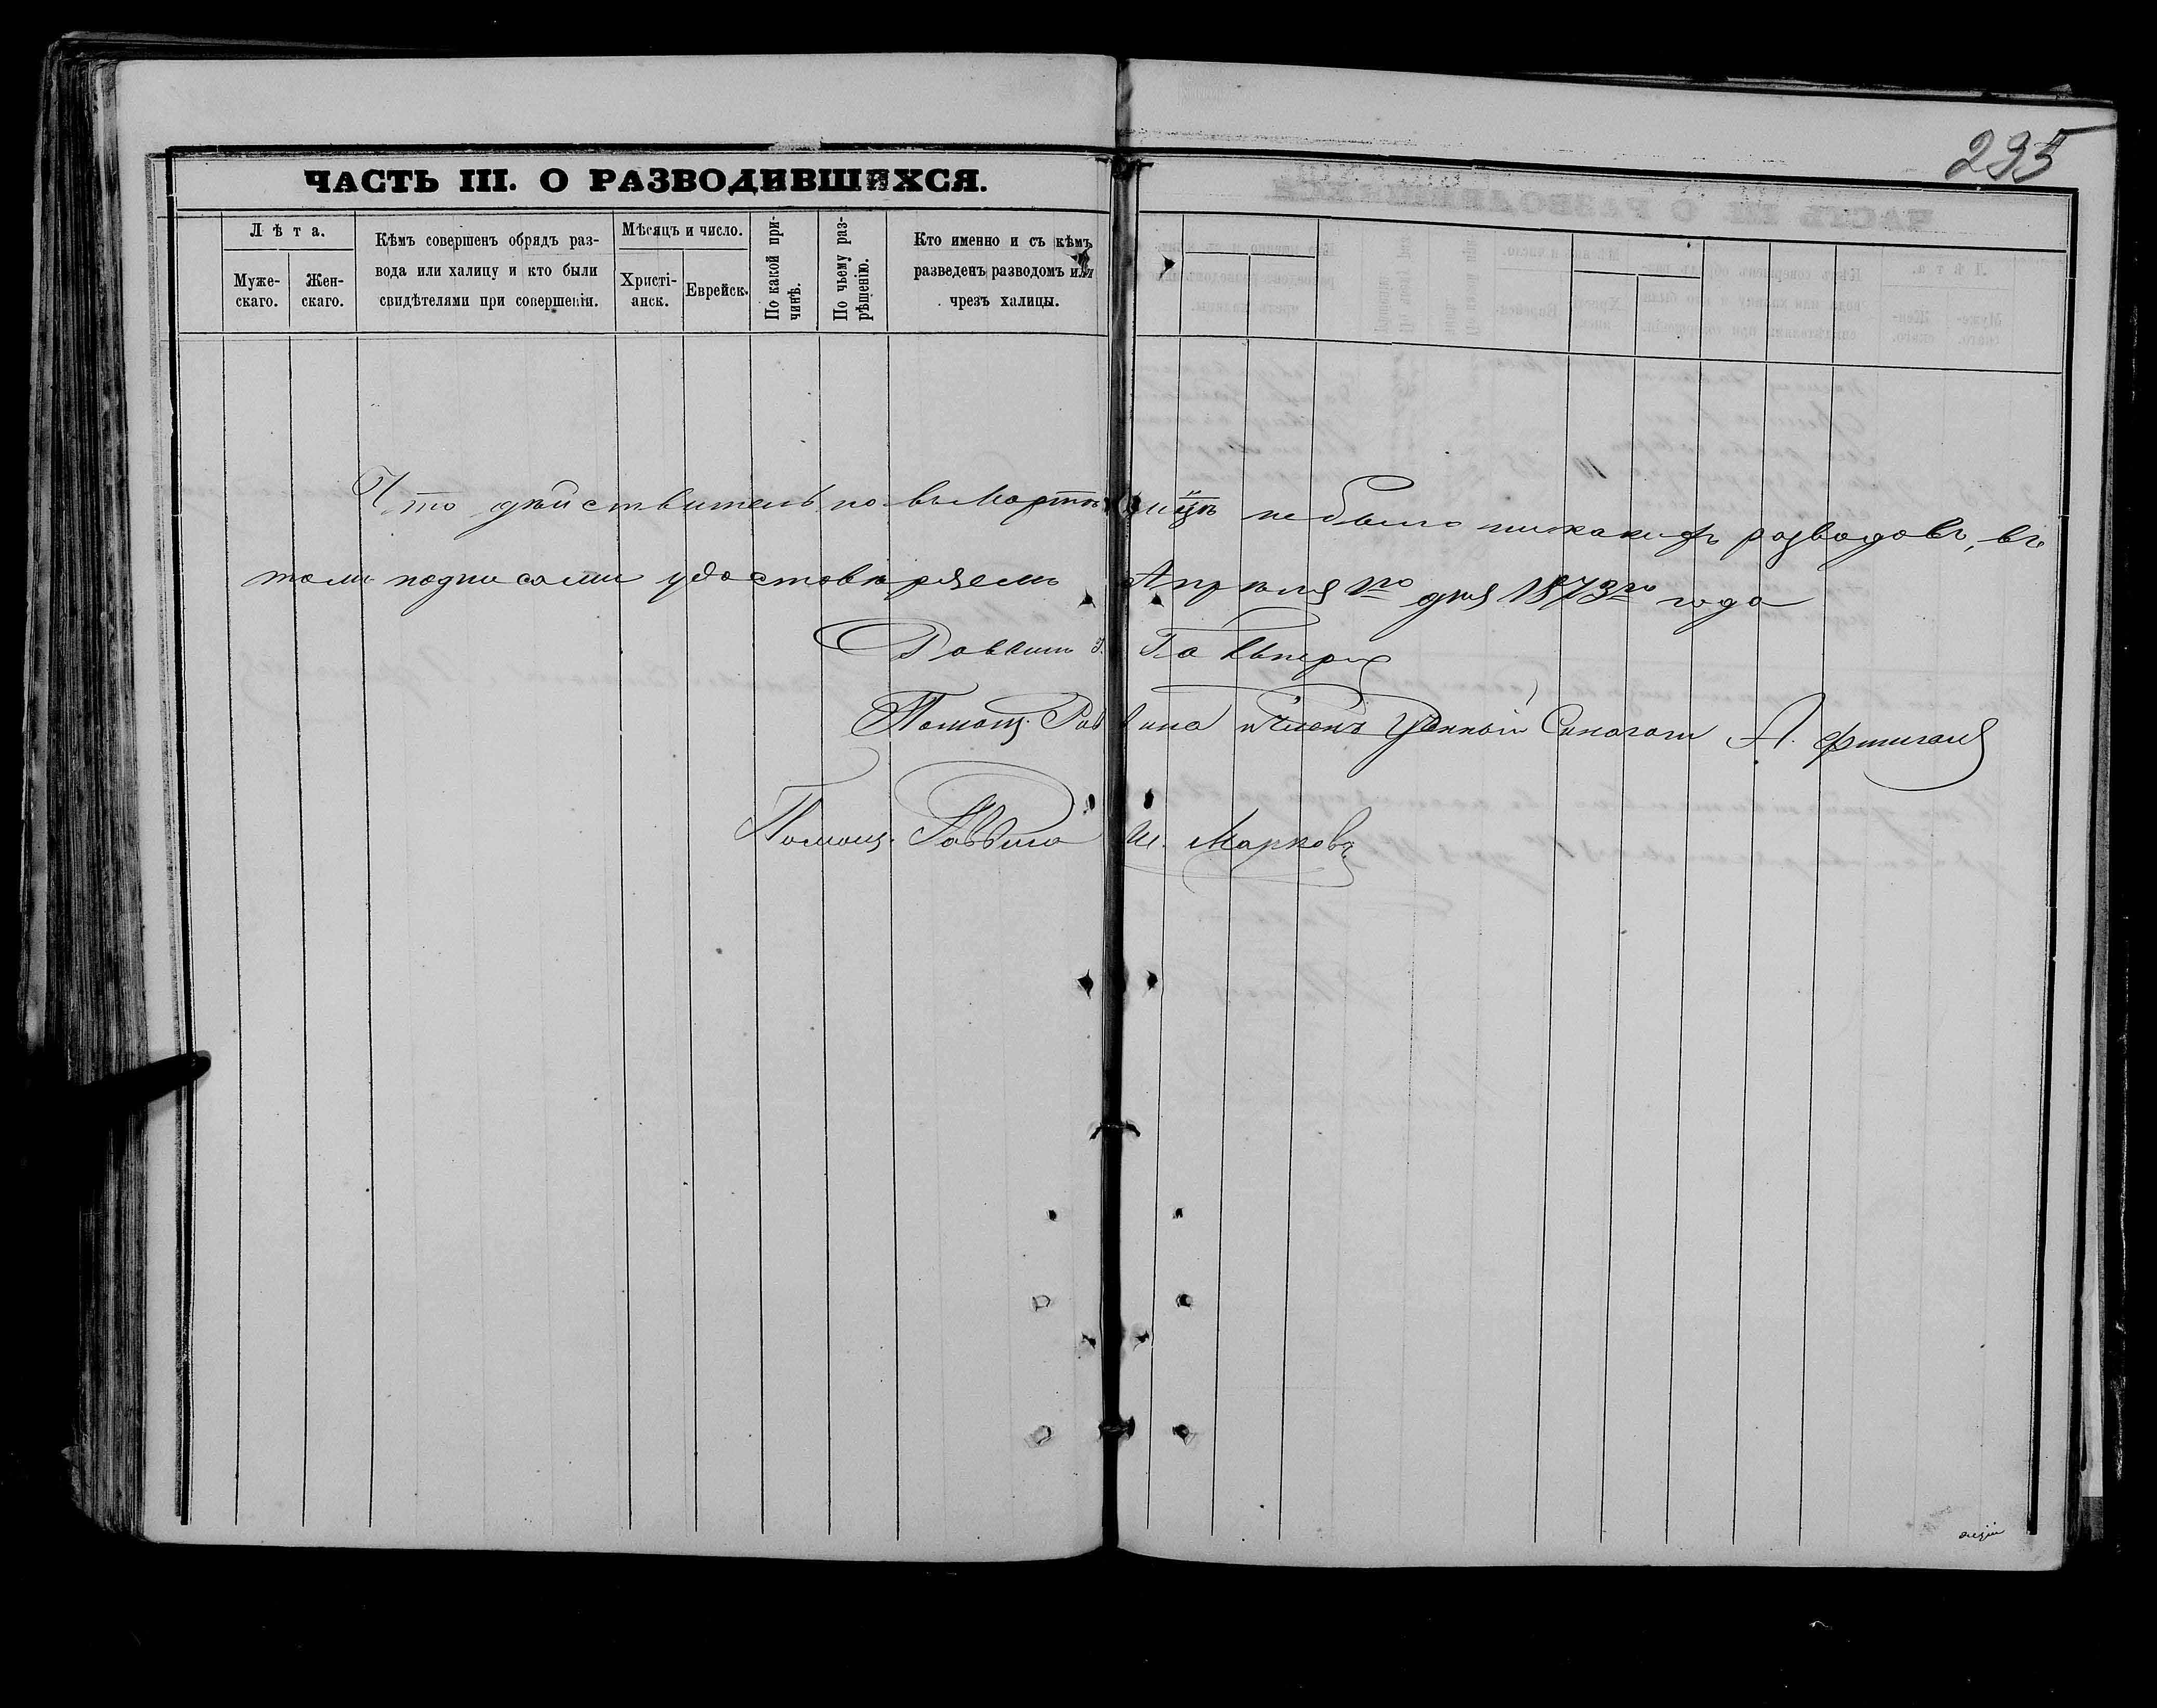 235
ЧАСТЬ III. О РАЗВОДИВШИХСЯ.
Лѣта.
Муже-
скаго.
Жен-
скаго.
Кѣмъ совершенъ обрядъ раз-
вода или халицу и кто были
свидѣтелями при совершеніи.
Мѣсяцъ и число.
Христі-
анск.
Еврейск.
По какой при-
чинѣ.
По чьему раз-
рѣшенію.
Кто именно и съ кѣмъ
разведенъ разводомъ или
чрезъ халицы.
Что дѣйствительно въ Мартѣ м-цѣ не было никакихъ разводовъ, въ
томъ подписами удостовѣряемъ Апрѣля 1го дня 1873го года
Раввинъ
Помощ. Раввина и Членъ Синагоги А.
Помощ. Раввина М. Марковъ